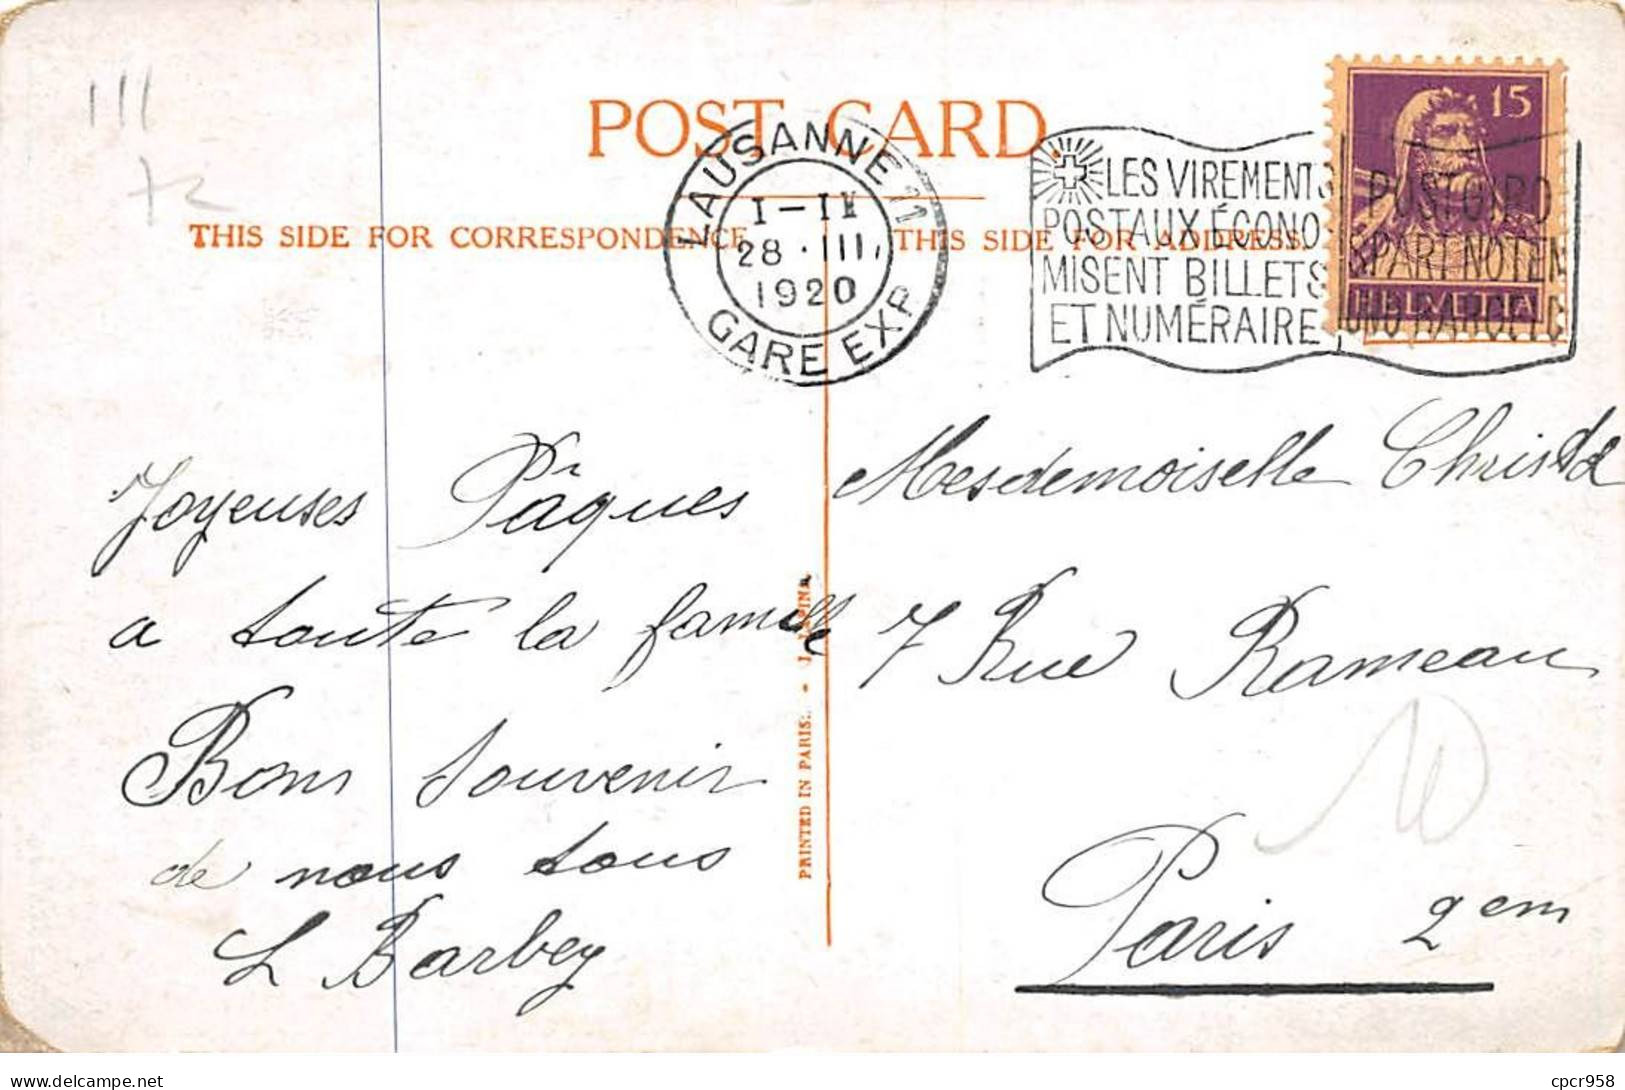 111
72
POST CARD.
THIS SIDE FOR CORRESPONDENCE
THIS SIDE FOR ADDRESS.
LAUSANNE 11
I-IX
28.III.
1920
GARE EXP.
LES VIREMENTS
POSTAUX ÉCONO
MISENT BILLETS
ET NUMÉRAIRE
POSTGIRO
SPART NOTEN
15
HELVETIA
Joyeuses Pâques
a toute la famille
Bons Souvenir
de nous tous
L Barbey
PRINTED IN PARIS. -
Mesdemoiselle
7 Rue Rameau
Paris 2em
cpcr958